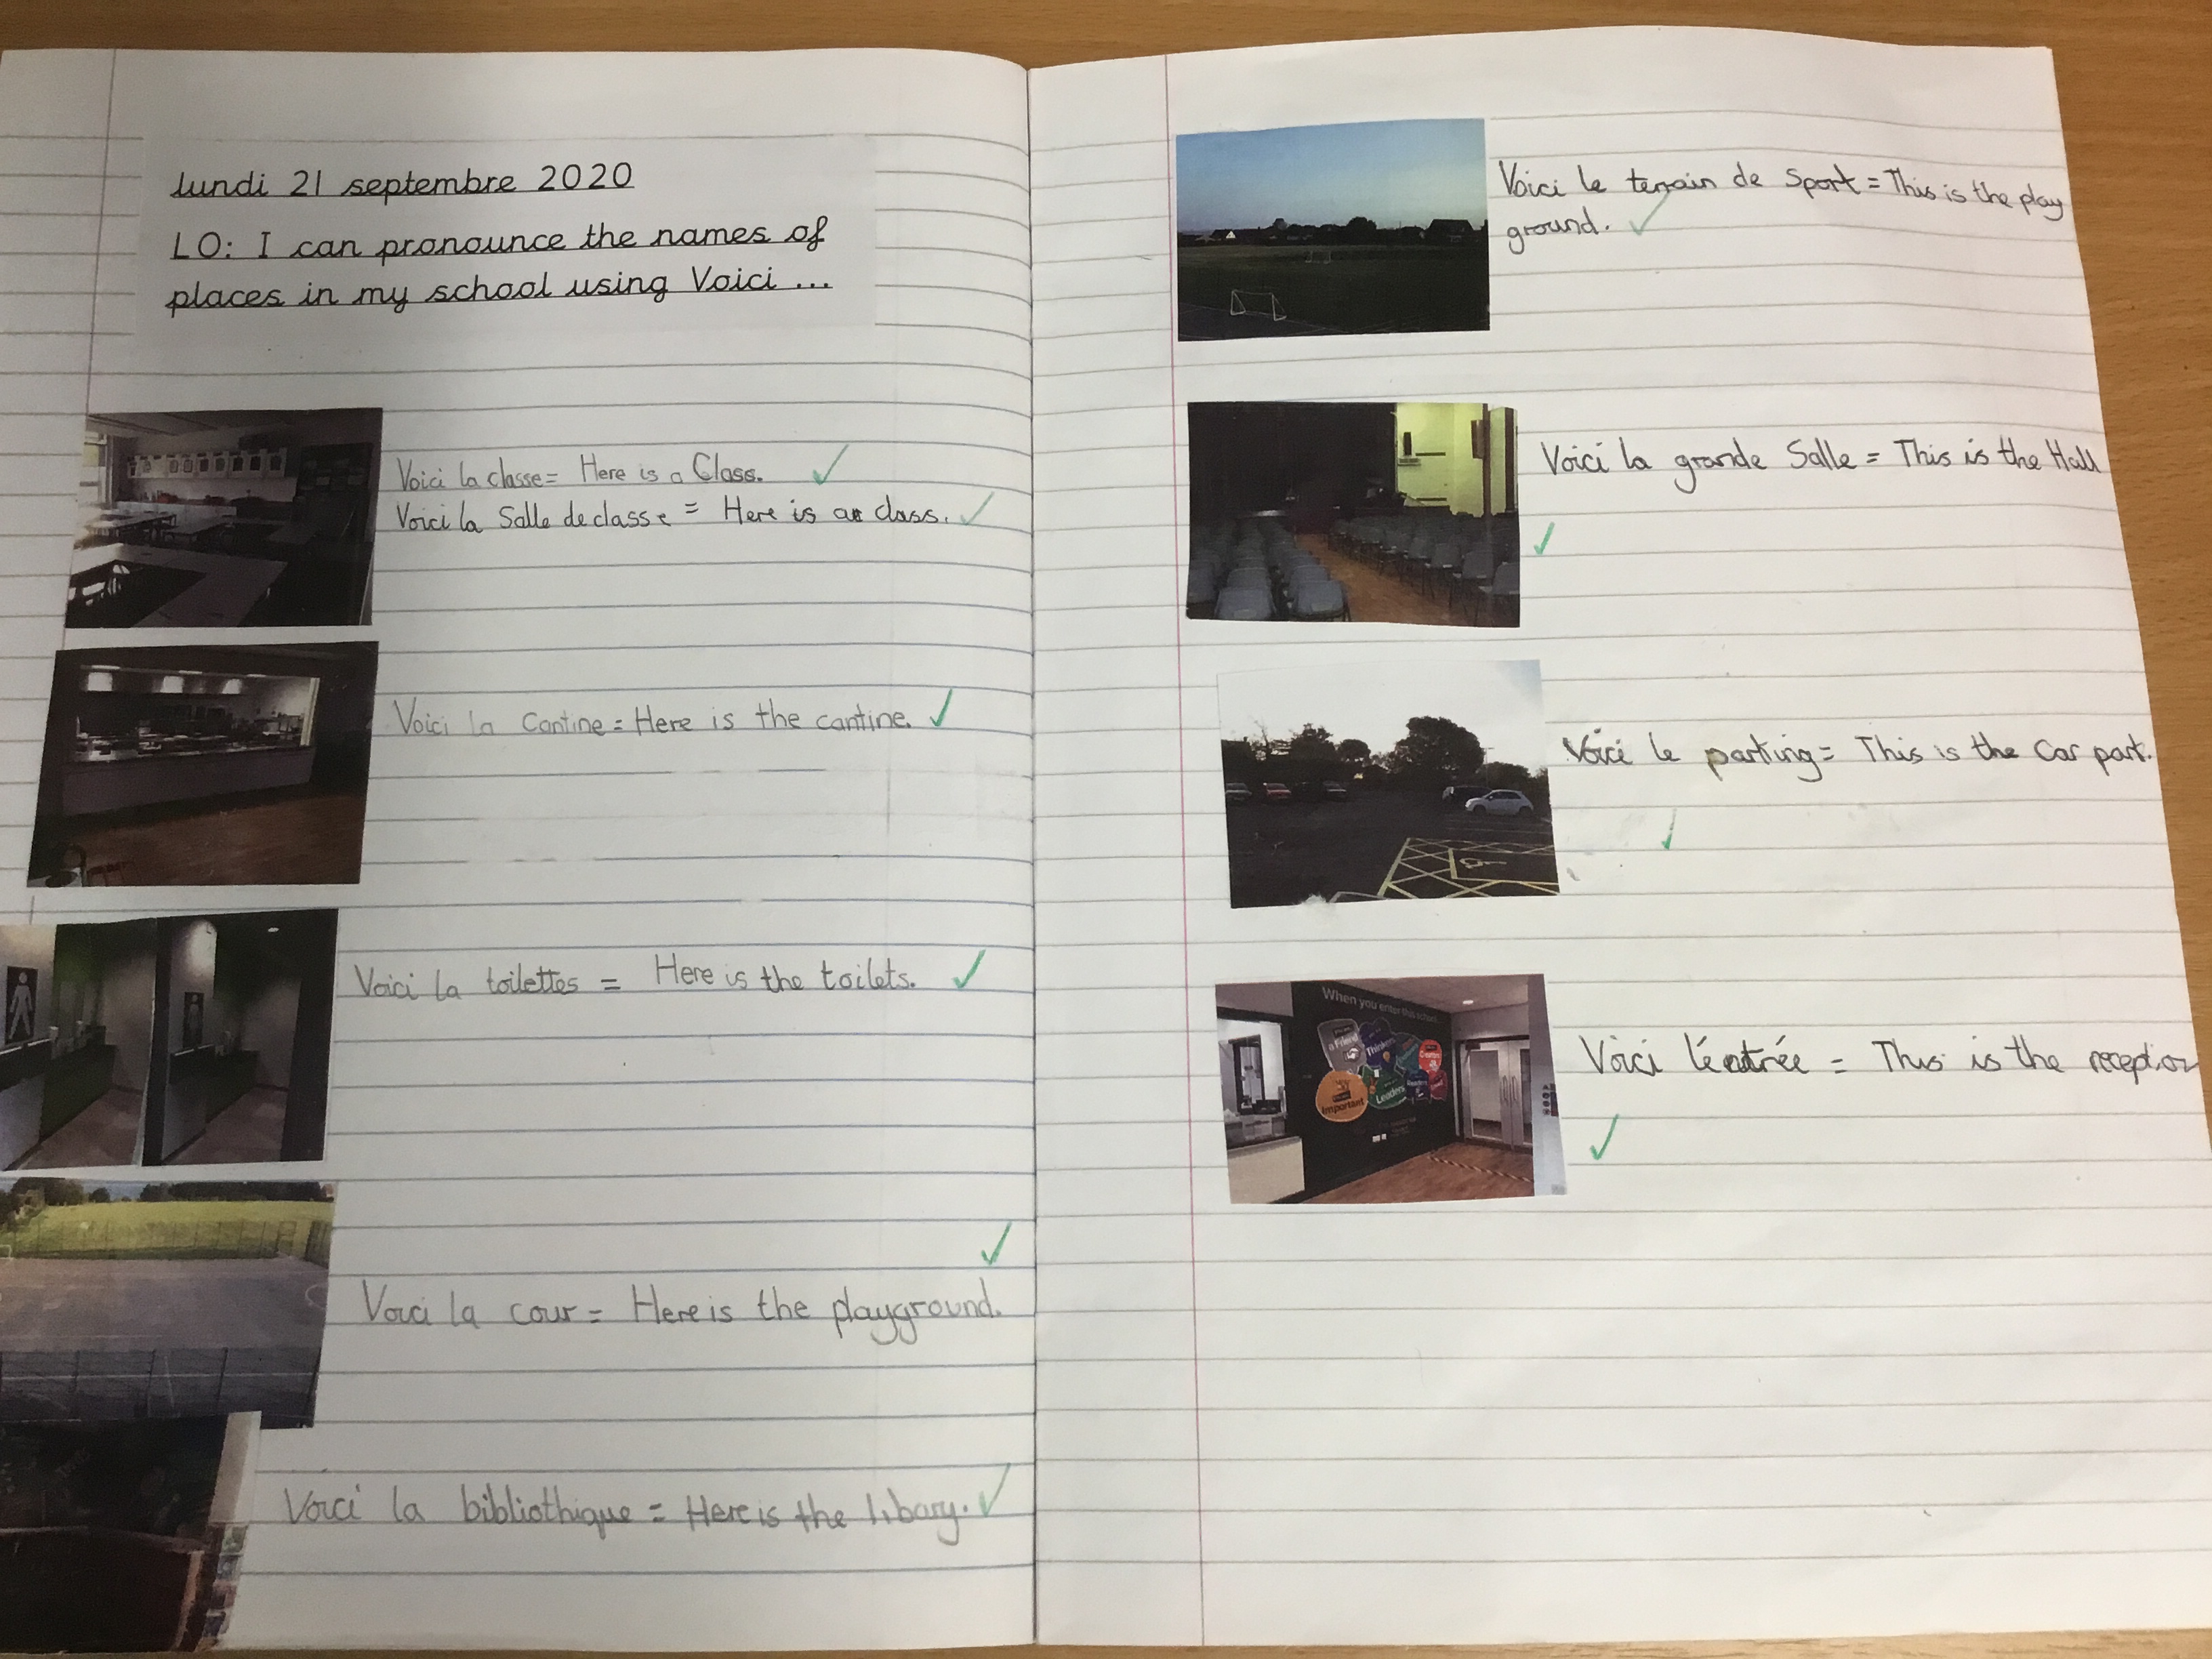 lundi 21 septembre 2020
LO: I can pronounce the names of
places in my school using Voici ...
Voici la classe = Here is a Class.
Voici la Salle de classe = Here is a class.
Voici la Cantine = Here is the cantine.
Voici la toilettes = Here is the toilets.
Voici la cour = Here is the playground.
Voici la bibliothique = Here is the libary.
Voici le terrain de Sport = This is the play
ground.
Voici la grande Salle = This is the Hall
Voici le parking = This is the Car park.
Voici l'éntrée = This is the reception
When you enter this school
a Friend
Thinkers
Important
Leaders